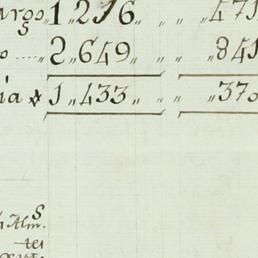 argo „ 1 „ 216 „ „ „ 471
o .... „ 2 „ 649 „ „ „ 841
ia „ 1 „ 433 „ „ „ 370
S
Alm.
tes